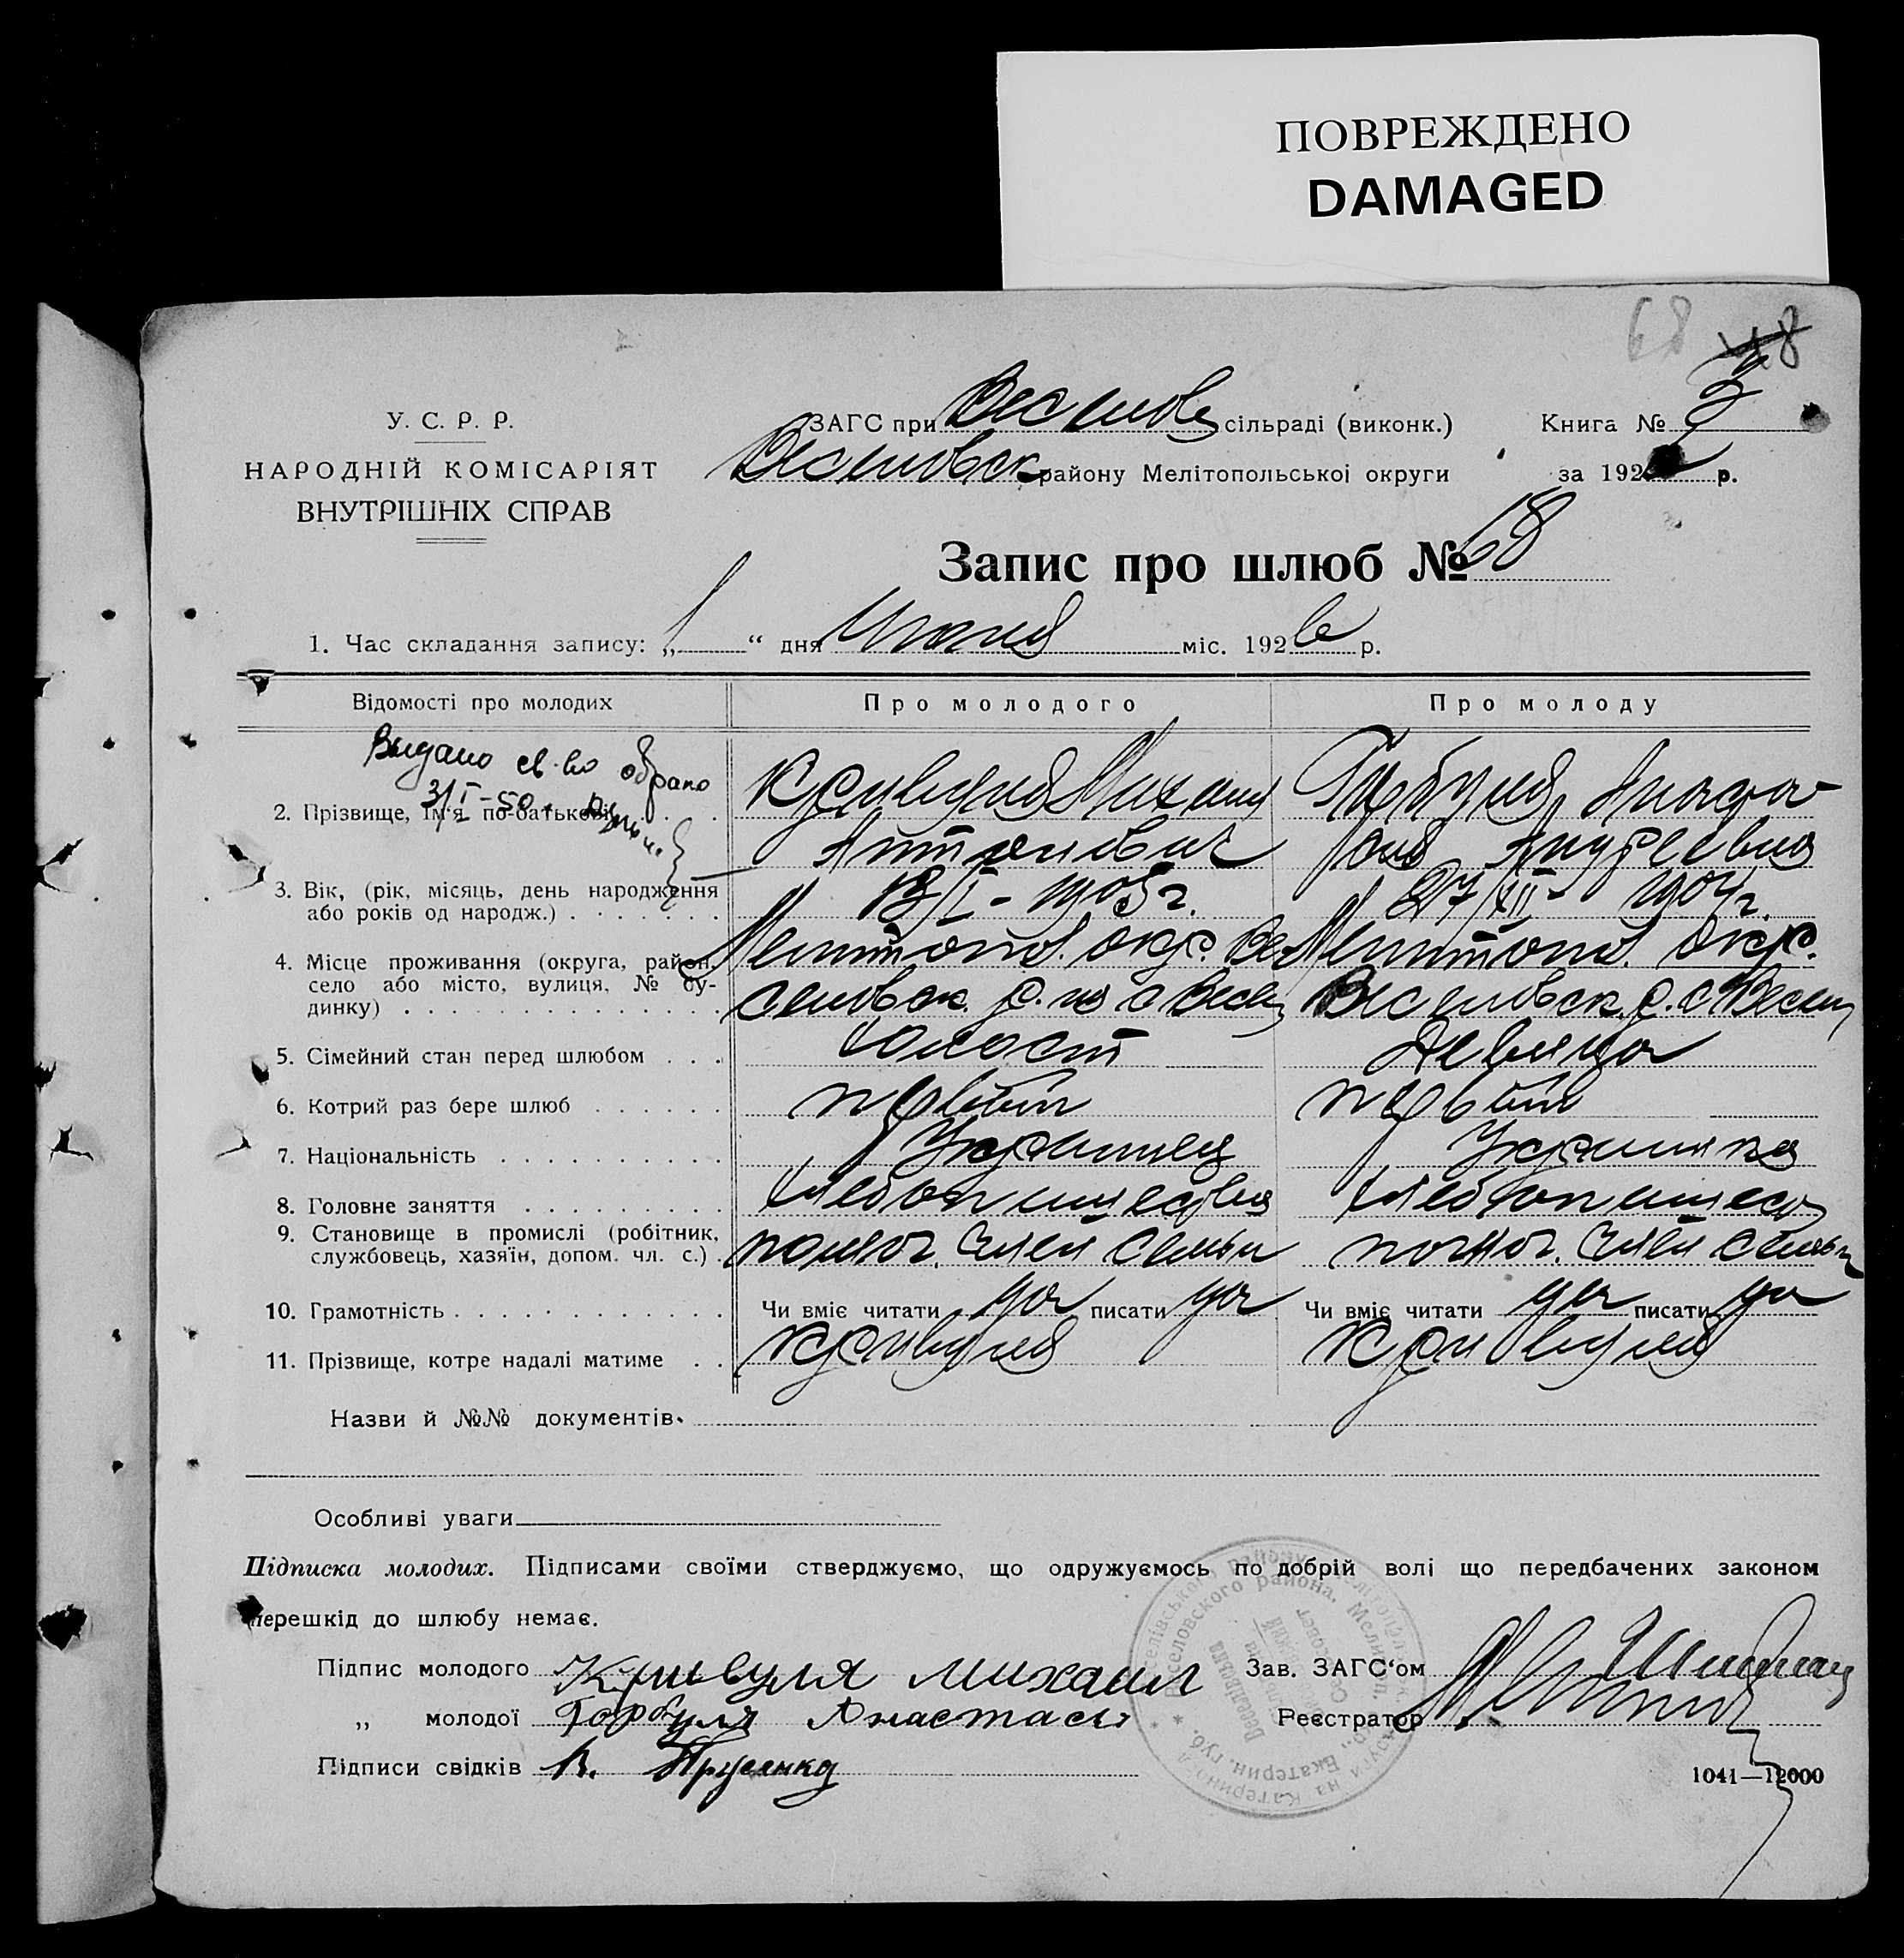 ПОВРЕЖДЕНО
DAMAGED
68
У. С. Р. Р.
НАРОДНІЙ КОМІСАРІЯТ
ВНУТРІШНІХ СПРАВ
ЗАГС при Веселов сільраді (виконк.) Книга № 2
Веселовск району Мелітопольської округи за 192 р.
Запис про шлюб № 68
1. Час складання запису: „ 1 “ дня міс. 1926 р.
Відомості про молодих Про молодого Про молоду
Видано св-во о браке
3/I-50
2. Прізвище, ім'я по-батькові . . . Кривуля Михаил Горбуля Анаста-
Антонович сия Андреевна
3. Вік, (рік, місяць, день народження
або років од народж.) . . . . . . . 13/I - 1905 г. 27/XII - 1904 г.
4. Місце проживання (округа, район, Мелитопол. окр. Ве Мелитопол. окр.
село або місто, вулиця, № бу-
динку) . . . . . . . . . . . . . . селовск. р-на с Весел Веселовск. р. с Весел
5. Сімейний стан перед шлюбом . . . холост девица
6. Котрий раз бере шлюб . . . . . . первый первый
7. Національність . . . . . . . . . . Украинец Украинка
8. Головне заняття . . . . . . . . .
9. Становище в промислі (робітник,
службовець, хазяїн, допом. чл. с.) . помог. член семьи помог. член семьи
10. Грамотність . . . . . . . . . . . . Чи вміє читати да писати да Чи вміє читати да писати да
11. Прізвище, котре надалі матиме . . Кривуля Кривуля
Назви й №№ документів.
Особливі уваги
Підписка молодих. Підписами своїми стверджуємо, що одружуємось по добрій волі що передбачених законом
перешкід до шлюбу немає.
Підпис молодого Кривуля Михаил Зав. ЗАГС'ом
„ молодої Горбуля Анастасы Реєстратор
Підписи свідків В.
Веселовского района, Мелитоп. Екатерин. губ.
1041—12000